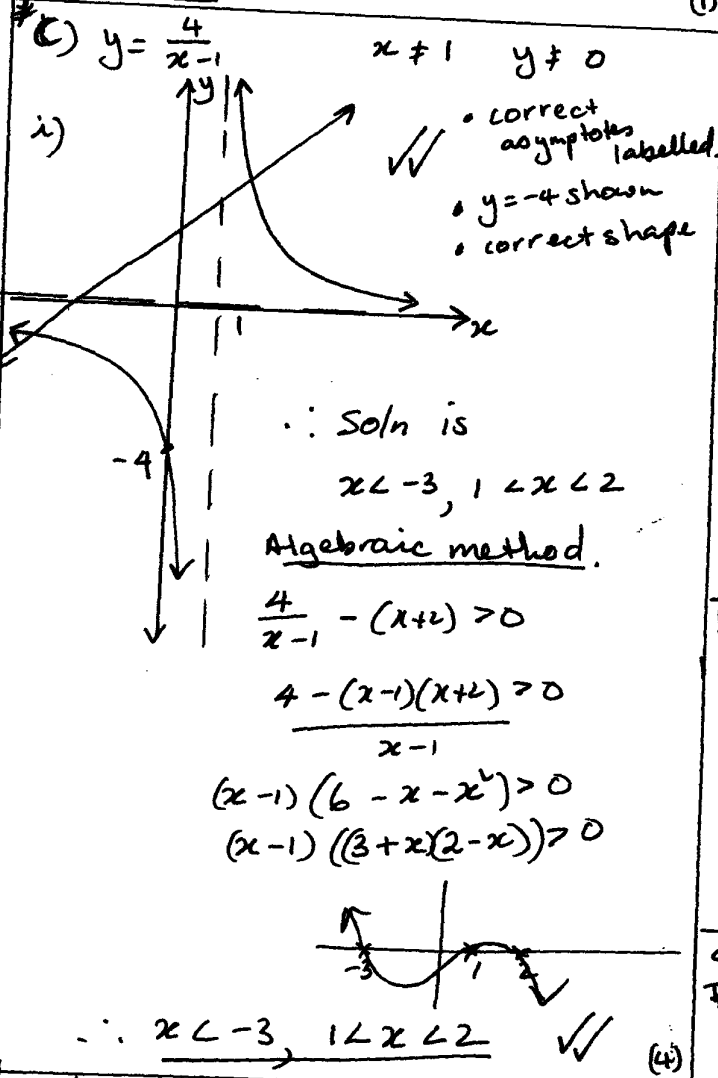 (1)
*C) y = 4/(x-1) x ≠ 1 y ≠ 0
i)
y
• correct asymptotes labelled.
• y = -4 shown
• correct shape
1
x
-4
∴ Soln is
x < -3, 1 < x < 2
Algebraic method.
4/(x-1) - (x+2) > 0
(4 - (x-1)(x+2))/(x-1) > 0
(x-1)(6 - x - x²) > 0
(x-1)((3+x)(2-x)) > 0
-3 1 2
∴ x < -3, 1 < x < 2
(4)